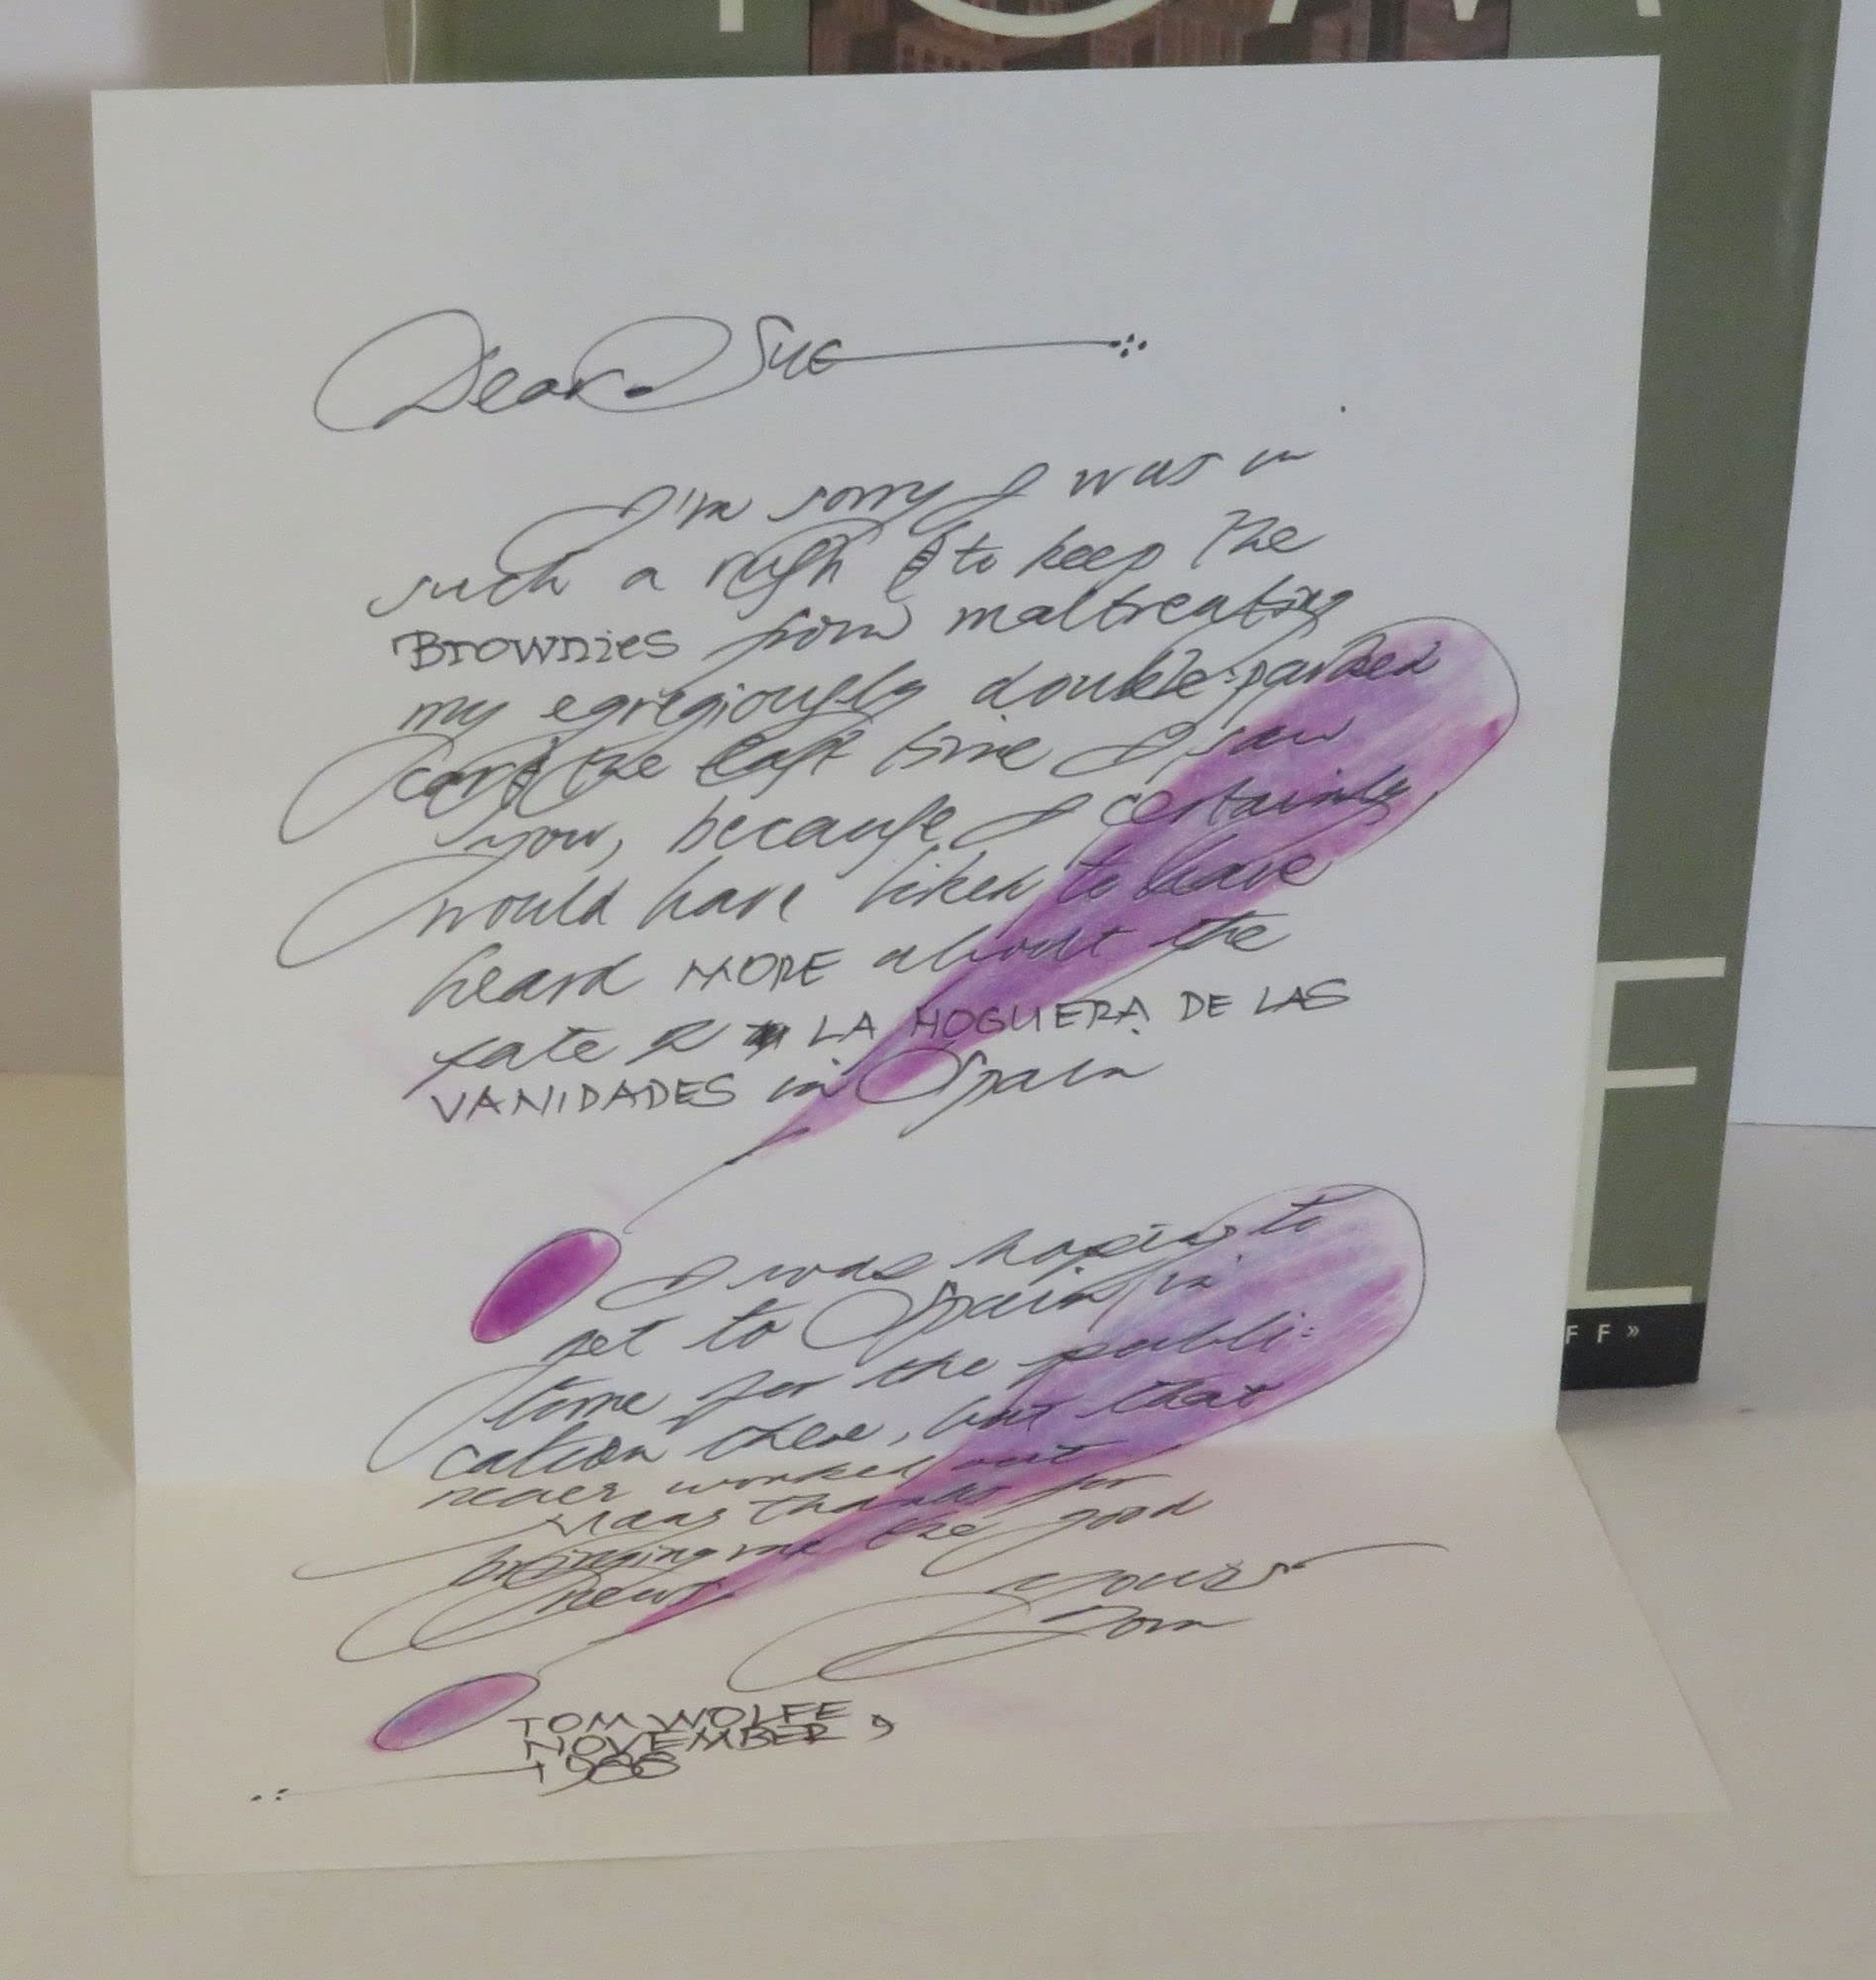 TOM
Dear Sue
I'm sorry I was in
such a rush to keep the
Brownies from maltreating
my egregiously double-parked
car the last time I saw
you, because I certainly
would have liked to have
heard MORE about the
fate LA HOGUERA DE LAS
VANIDADES in Spain
I was hoping to
get to Spain in
time for the publi-
cation there, but that
never worked out
Many thanks for
bringing me the good
news
Yours
Tom
TOM WOLFE
NOVEMBER 9
1988
E
FF»